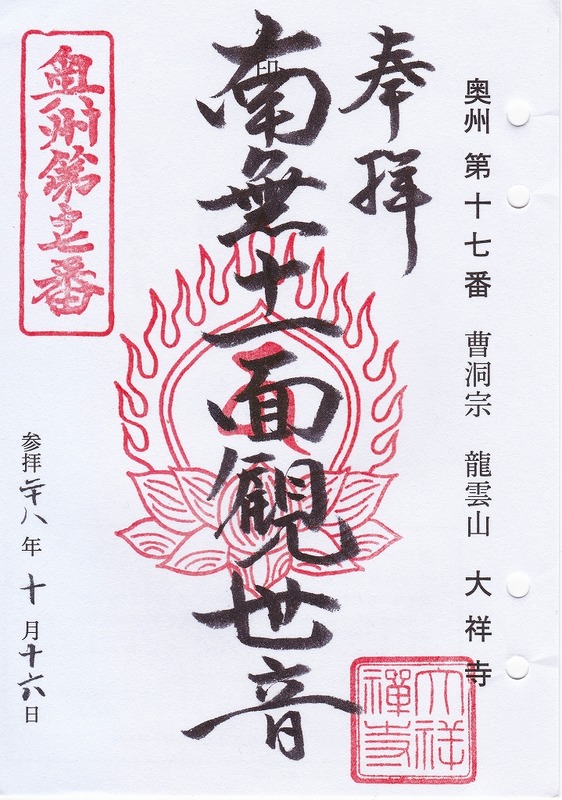 奥州 第十七番 曹洞宗 龍雲山 大祥寺
奉拝
南無十一面観世音
奥州第十七番
大祥禅寺
参拝 二十八年 十月十六日